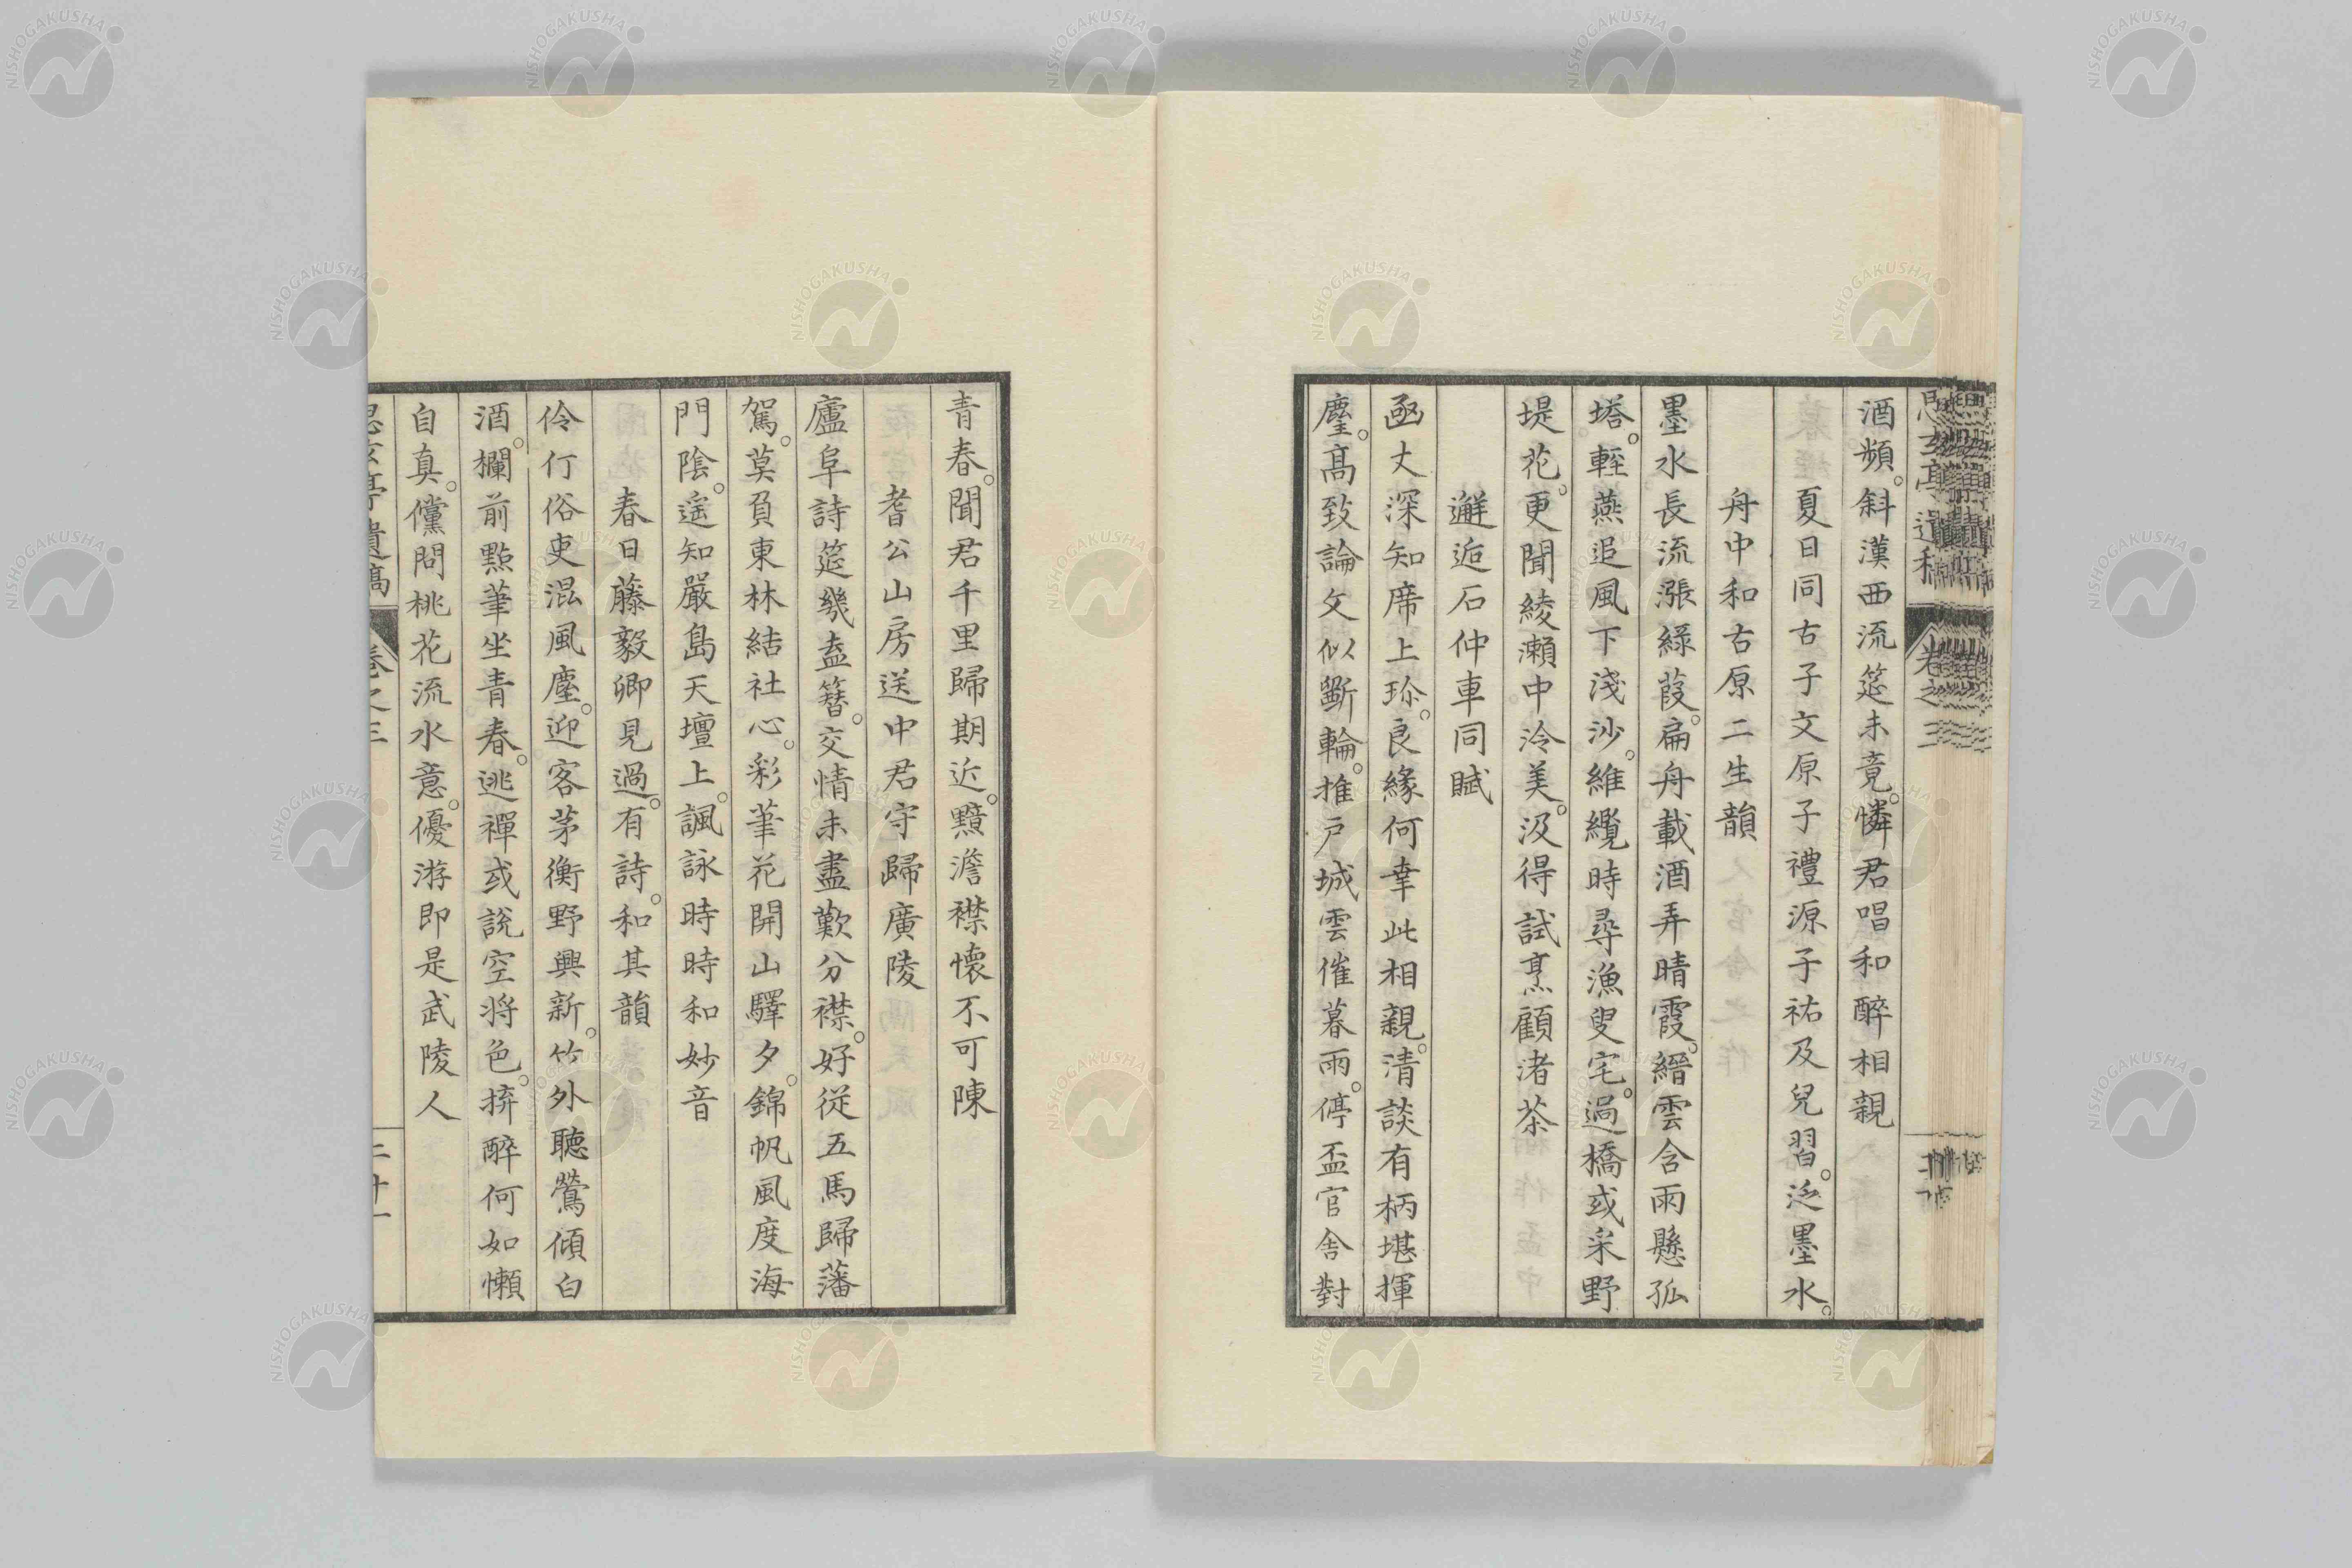 酒頻。斜漢西流筵未竟。憐君唱和醉相親
夏日同古子文原子禮源子祐及兒習。泛墨水。
舟中和古原二生韻
墨水長流漲綠葭。扁舟載酒弄晴霞。縉雲含雨懸孤
塔。輕燕追風下淺沙。維纜時尋漁叟宅。過橋或采野
堤花。更聞綾瀨中泠美。汲得試烹顧渚茶
邂逅石仲車同賦
函丈深知席上珍。良緣何幸此相親。清談有柄堪揮
麈。高致論文似斲輪。推戶城雲催暮雨。停盃官舍對
青春。聞君千里歸期近。黯澹襟懷不可陳
耆公山房送中君守歸廣陵
廬阜詩筵幾盍簪。交情未盡歎分襟。好從五馬歸藩
駕。莫負東林結社心。彩筆花開山驛夕。錦帆風度海
門陰。遙知嚴島天壇上。諷詠時時和妙音
春日藤毅卿見過。有詩。和其韻
伶仃俗吏混風塵。迎客茅衡野興新。竹外聽鶯傾白
酒。欄前點筆坐青春。逃禪或說空將色。捹醉何如懶
自真。儻問桃花流水意。優游即是武陵人
思玄亭遺稿 卷之三 二十一
NISHOGAKUSHA